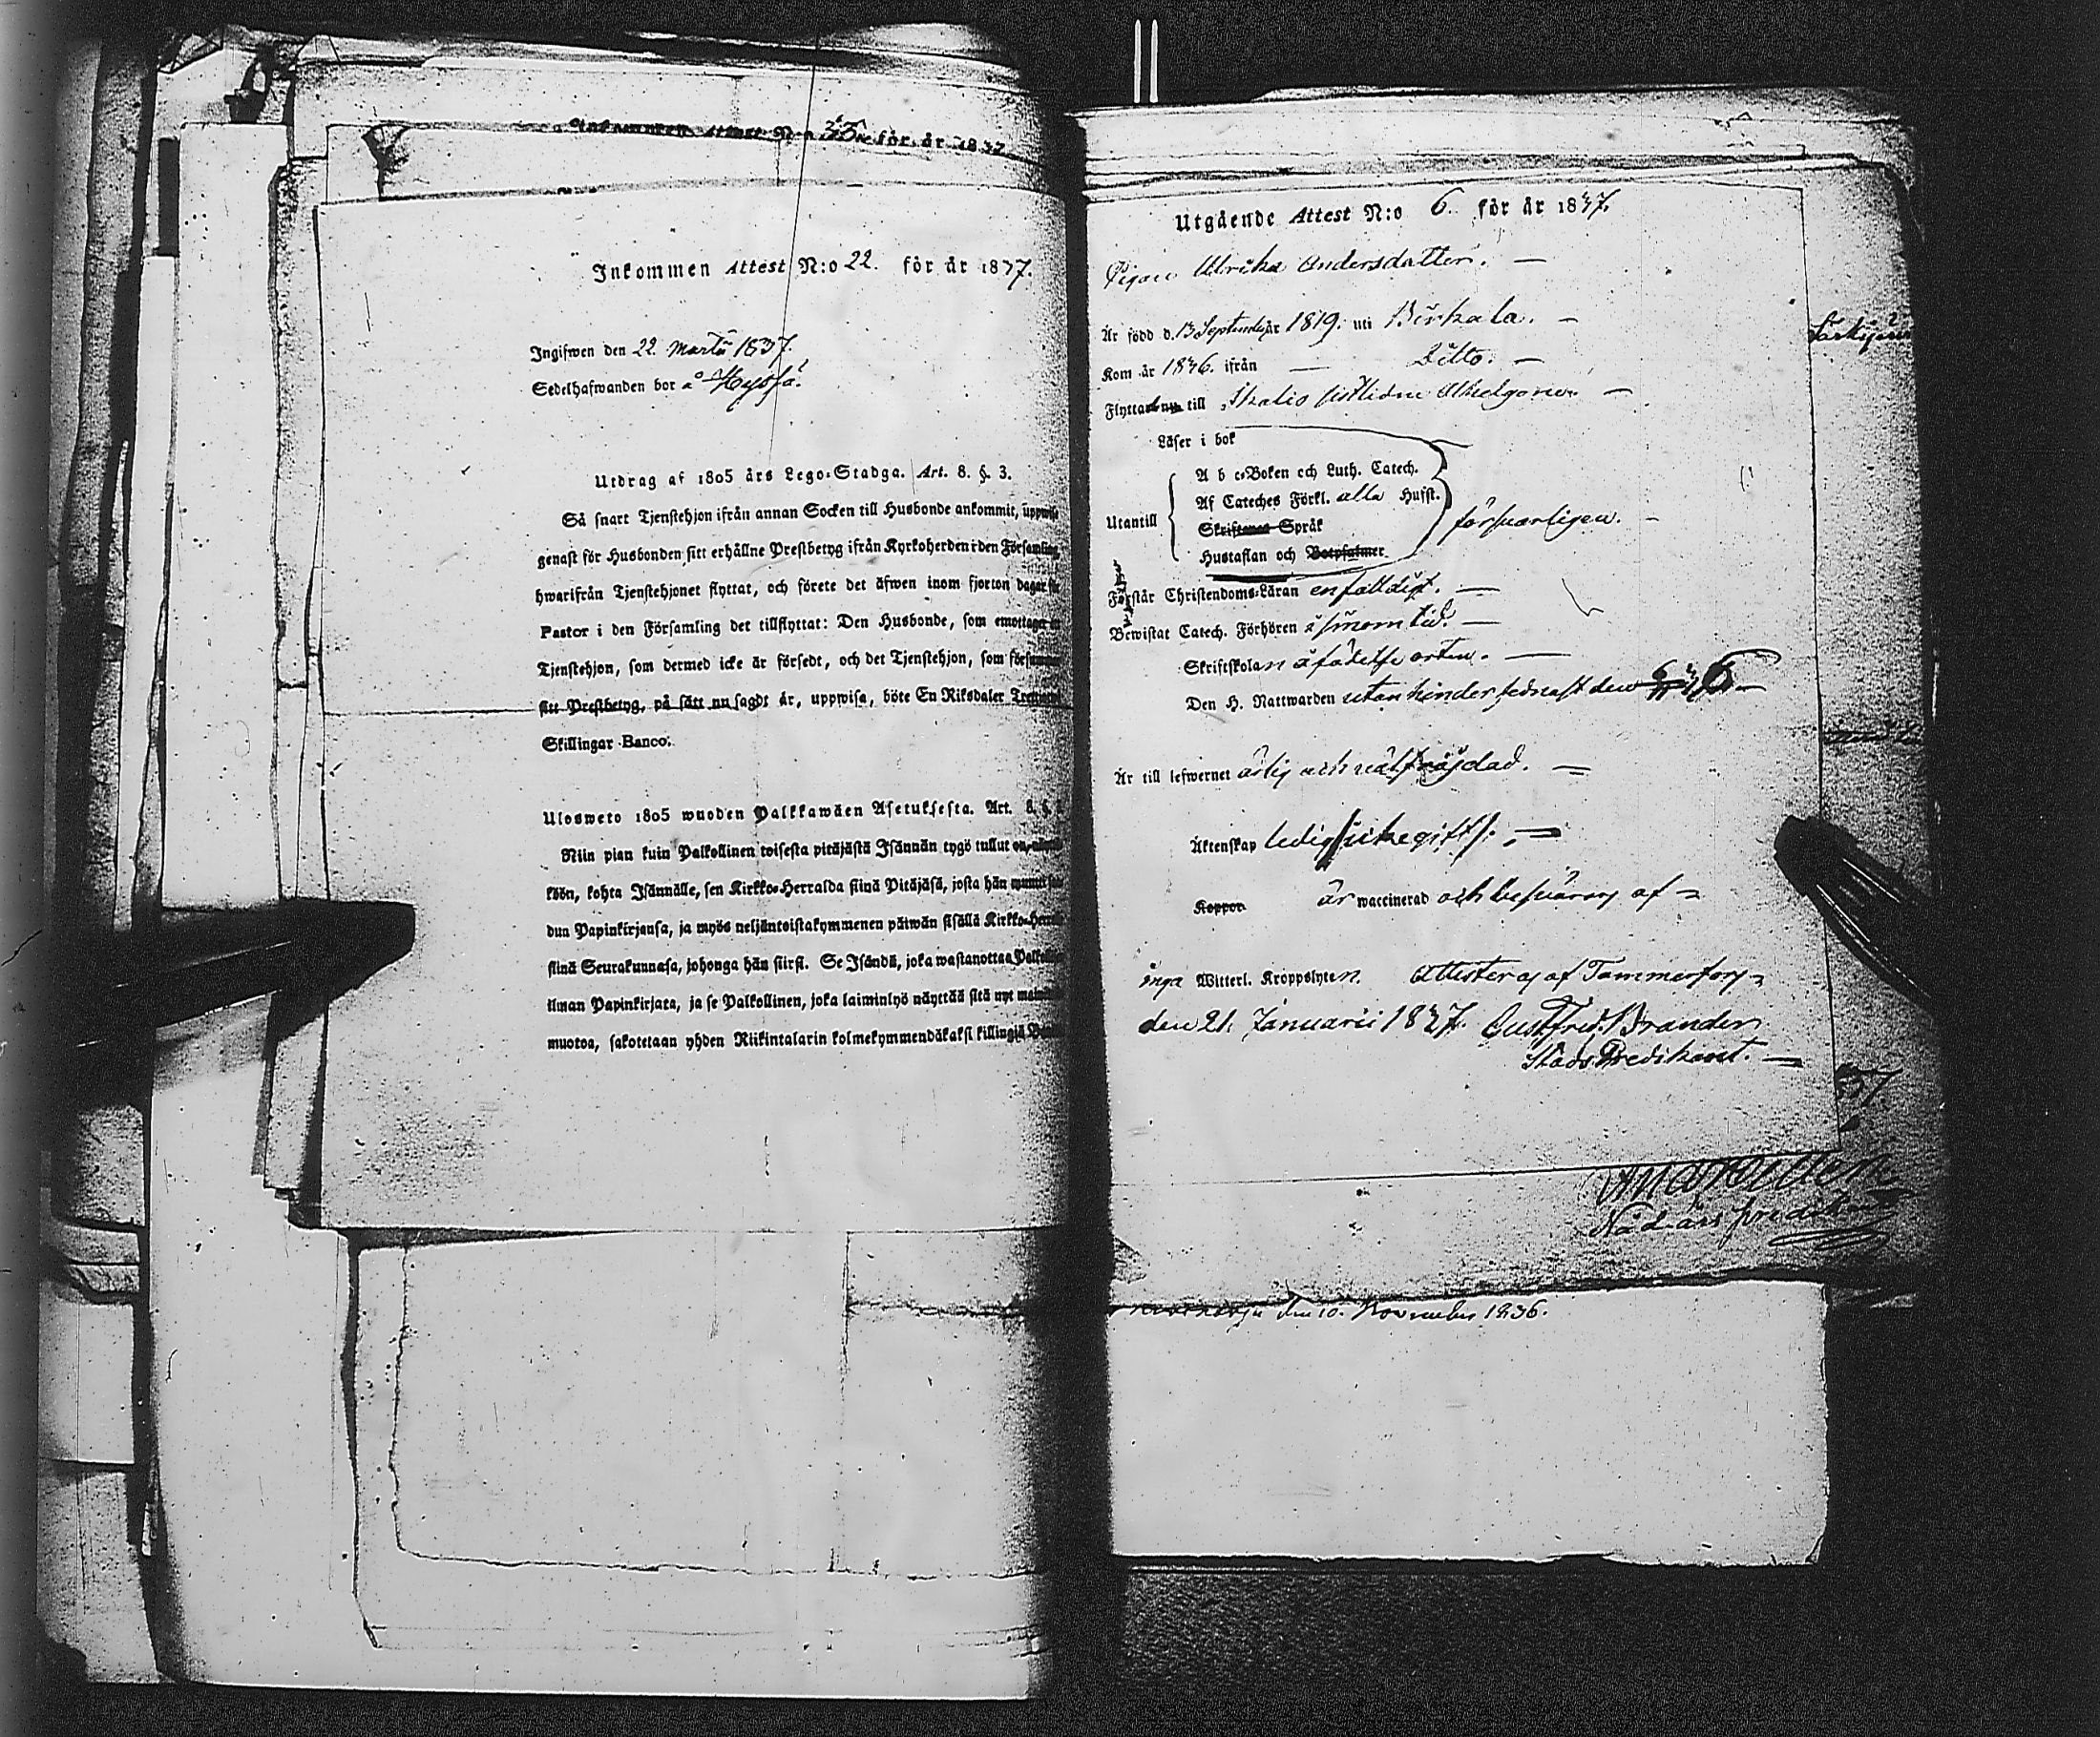 Inkommen Attest N:o 35 för år 1837.
Inkommen Attest N:o 22. för år 1837.
Ingifwen den 22. Martii 1837.
Sedelhafwanden bor å
Utdrag af 1805 års Lego-Stadga. Art. 8. §. 3.
Så snart Tjenstehjon ifrån annan Socken till Husbonde ankommit, uppwise
genast för Husbonden sitt erhållne Prestbetyg ifrån Kyrkoherden i den Församling
hwarifrån Tjenstehjonet flyttat, och förete det äfwen inom fjorton dagar för
Pastor i den Församling det tillflyttat: Den Husbonde, som emottager
Tjenstehjon, som dermed icke är försedt, och det Tjenstehjon, som
sitt Prestbetyg, på sätt nu sagdt är, uppwisa, böte En Riksdaler
Skillingar Banco.
Ulosweto 1805 wuoden Palkkawäen Asetuksesta. Art. 8. §.
Niin pian kuin Palkollinen toisesta pitäjästä Isännän tygö tullut on,
köön, kohta Isännälle, sen Kirkko-Herralda siinä Pitäjäsä, josta hän
dun Papinkirjansa, ja myös neljäntoistakymmenen päiwän sisällä
siinä Seurakunnasa, johonga hän siirsi. Se Isändä, joka wastanottaa
ilman Papinkirjata, ja se Palkollinen, joka laiminlyö näyttää sitä nyt
muotoa, sakotetaan yhden Riikintalarin kolmekymmendäkaksi killingiä
Utgående Attest N:o 6. för år 1837.
Pigan Ulrika Andersdotter. —
Är född d. 13 September år 1819. uti Birkala. —
Kom år 1836. ifrån — Ditto. —
Flyttar nu till Ikalis
Läser i bok
A b c-Boken och Luth. Catech.
Af Cateches Förkl. alla Hufst.
Utantill Skriftenes Språk försvarligen. —
Hustaflan och Botpsalmer.
Förstår Christendoms-Läran enfaldigt. —
Bewistat Catech. Förhören i sinom tid. —
Skriftskolan å födelse orten. —
Den H. Nattwarden utan hinder sednast den
Är till lefwernet ärlig och välfräjdad. —
Äktenskap ledig /: icke gift :/. —
Koppor är waccinerad och besväras af
inga Witterl. Kroppslyten. Attesteras af Tammerfors
den 21. Januarii 1837. Gust. Fred. Brander
StadsPredikant. —
37
Nådårs predikant
den 10. November 1836.